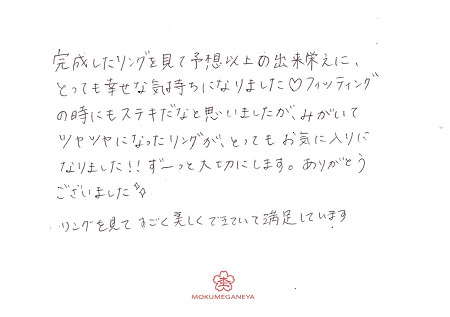 完成したリングを見て予想以上の出来栄えに、
とっても幸せな気持ちになりました♡フィッティング
の時にもステキだなと思いましたが、みがいて
ツヤツヤになったリングが、とってもお気に入りに
なりました!!ずーっと大切にします。ありがとう
ございました✨
リングを見てすごく美しくできていて満足しています
MOKUMEGANEYA